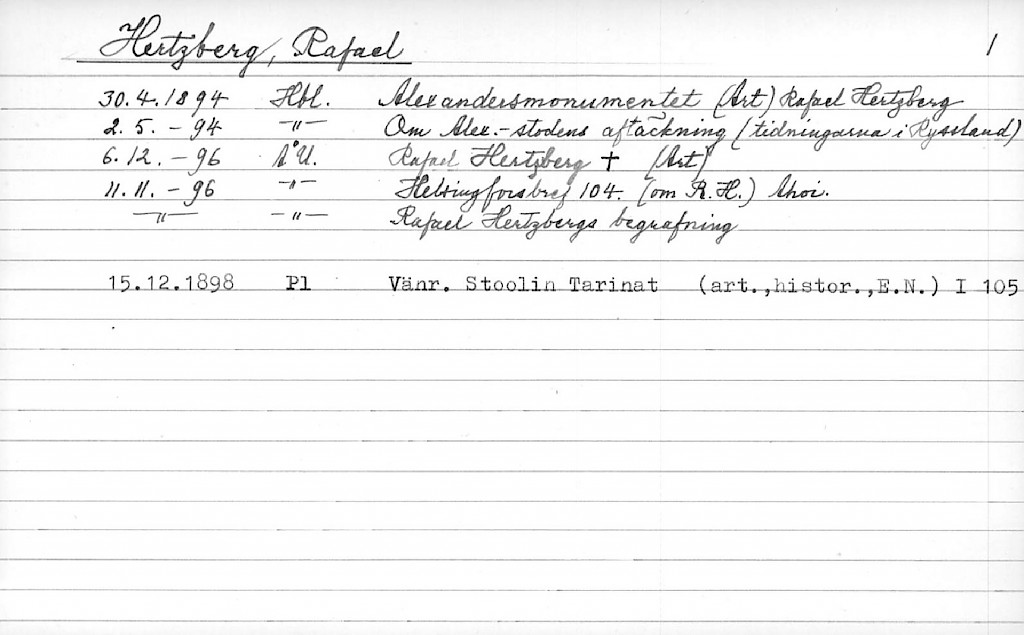 Hertzberg, Rafael 1
30.4.1894 Hbl. Alexandersmonumentet (Art) Rafael Hertzberg
2. 5. - 94 -"- Om Alex.-stodens aftäckning (tidningarna i Ryssland)
6. 12. - 96 Å.U. Rafael Hertzberg † (Art)
11. 11. - 96 -"- Helsingforsbref 104. (om R.H.) Ahoi.
-"- -"- Rafael Hertzbergs begrafning
15.12.1898 Pl Vänr. Stoolin Tarinat (art.,histor.,E.N.) I 105